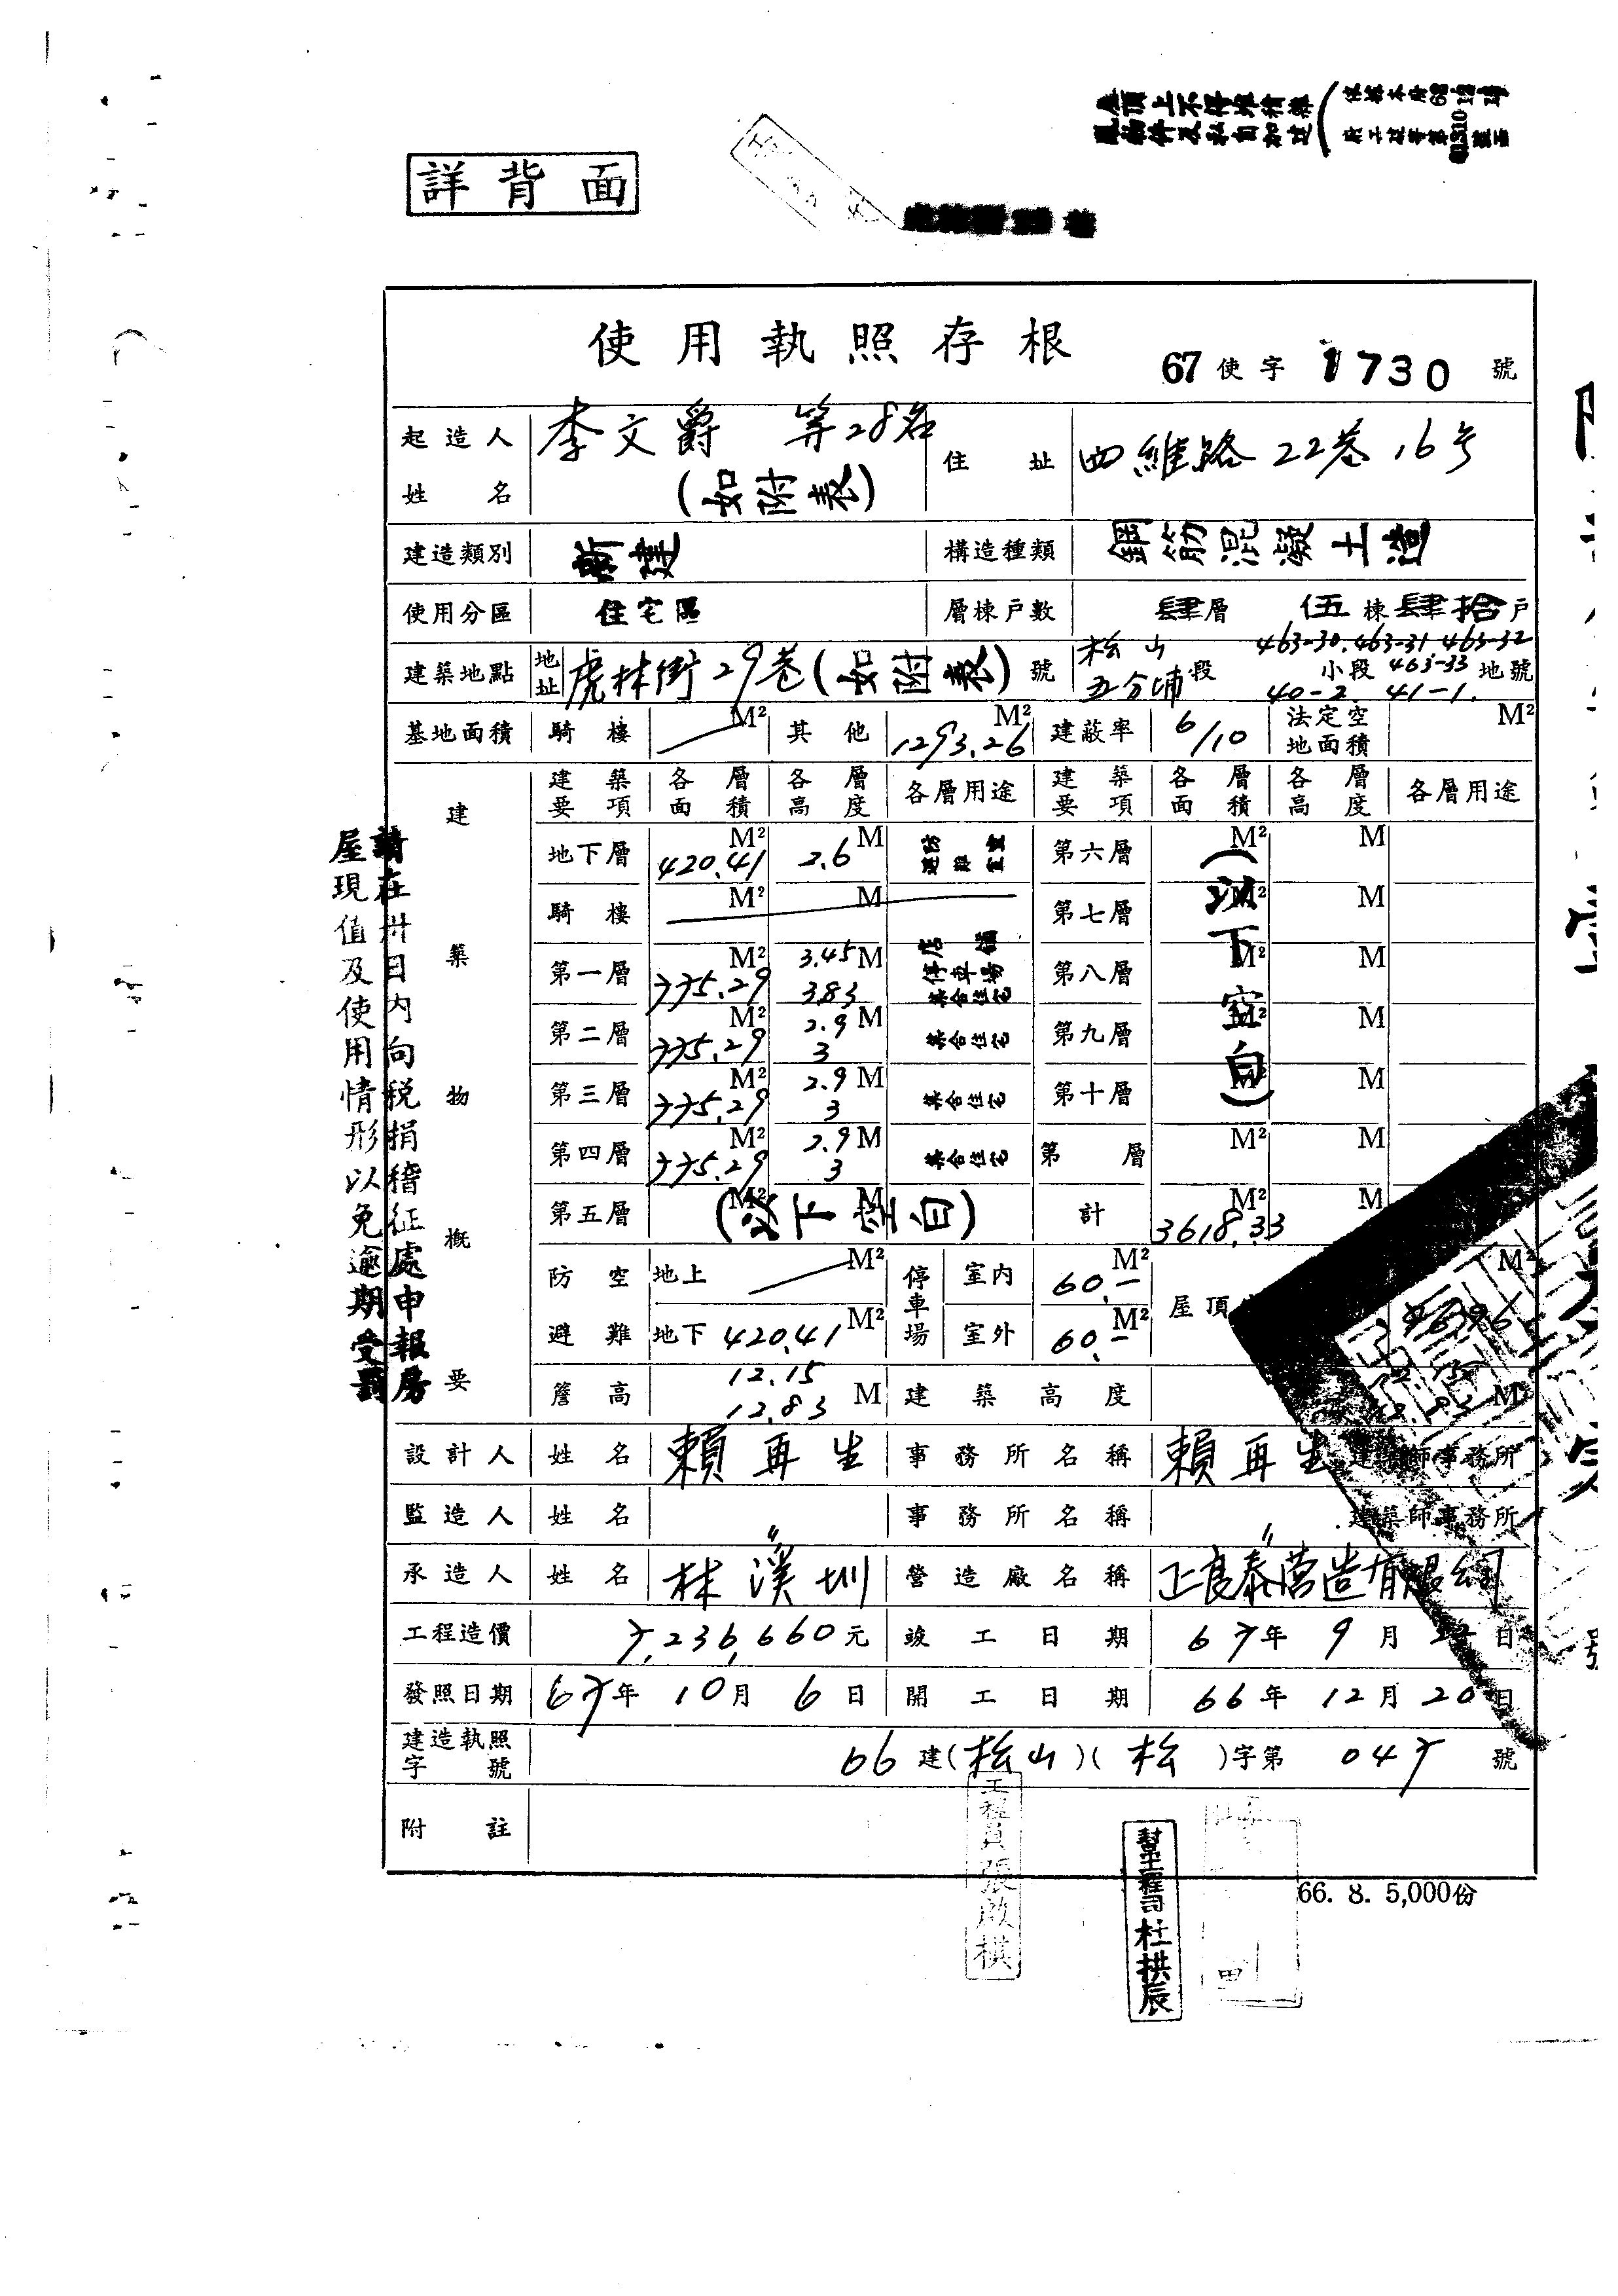 詳背面
使用執照存根
67使字1730號
起造人姓名 李文爵 等28名 (如附表) 住址 四維路22巷16号
建造類別 新建 構造種類 鋼筋混凝土造
使用分區 住宅區 層棟戶數 肆層 伍棟 肆拾戶
建築地點 地址 虎林街29巷(如附表)號 松山 五分埔 段 小段 463-30.463-31 463-32 463-33 40-2 41-1. 地號
基地面積 騎樓 M² 其他 1293.26 M² 建蔽率 6/10 法定空地面積 M²
建築物概要
建築要項 各層面積 各層高度 各層用途 建築要項 各層面積 各層高度 各層用途
地下層 420.41 M² 2.6 M 防空避難室 第六層 M² M
騎樓 M² M 第七層 M² M
第一層 775.29 M² 3.45 3.83 M 店舖 停車場 集合住宅 第八層 M² M
第二層 775.29 M² 2.9 3 M 集合住宅 第九層 M² M
第三層 775.29 M² 2.9 3 M 集合住宅 第十層 M² M
第四層 775.29 M² 2.9 3 M 集合住宅 第 層 M² M
(以下空白)
第五層 M² M (以下空白) 計 3618.33 M² M
防空避難 地上 M² 停車場 室內 60.- M² 屋頂 M²
地下 420.41 M² 室外 60.- M²
簷高 12.15 12.83 M 建築高度 12.15 12.83 M
設計人 姓名 賴再生 事務所名稱 賴再生 建築師事務所
監造人 姓名 〃 事務所名稱 〃 建築師事務所
承造人 姓名 林溪圳 營造廠名稱
工程造價 7,236,660元 竣工日期 67年9月 日
發照日期 67年10月6日 開工日期 66年12月20日
建造執照字號 66建(松山)(松)字第047號
附註
66. 8. 5,000份
請在卅日內向稅捐稽征處申報房
屋現值及使用情形以免逾期受罰
工程員張啟棋
幫工程司杜拱辰